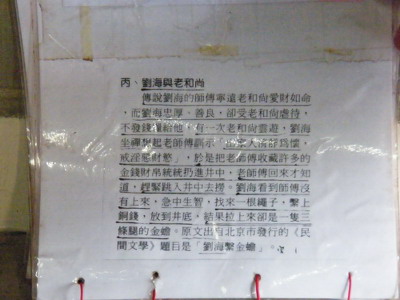 丙、劉海與老和尚
傳說劉海的師傅寧遠老和尚愛財如命
,而劉海忠厚、善良,卻受老和尚虐待,
不發錢糧給他,有一次老和尚雲遊,劉海
坐禪想起老師傅訓示「出家人情都為懷,
戒淫慾財慾」,於是把老師傅收藏許多的
金錢財帛統統扔進井中,老師傅回來才知
道,趕緊跳入井中去撈。劉海看到師傅沒
有上來,急中生智,找來一根繩子,繫上
銅錢,放到井底,結果拉上來卻是一隻三
條腿的金蟾。原文出自北京市發行的《民
間文學》題目是「劉海繫金蟾」。